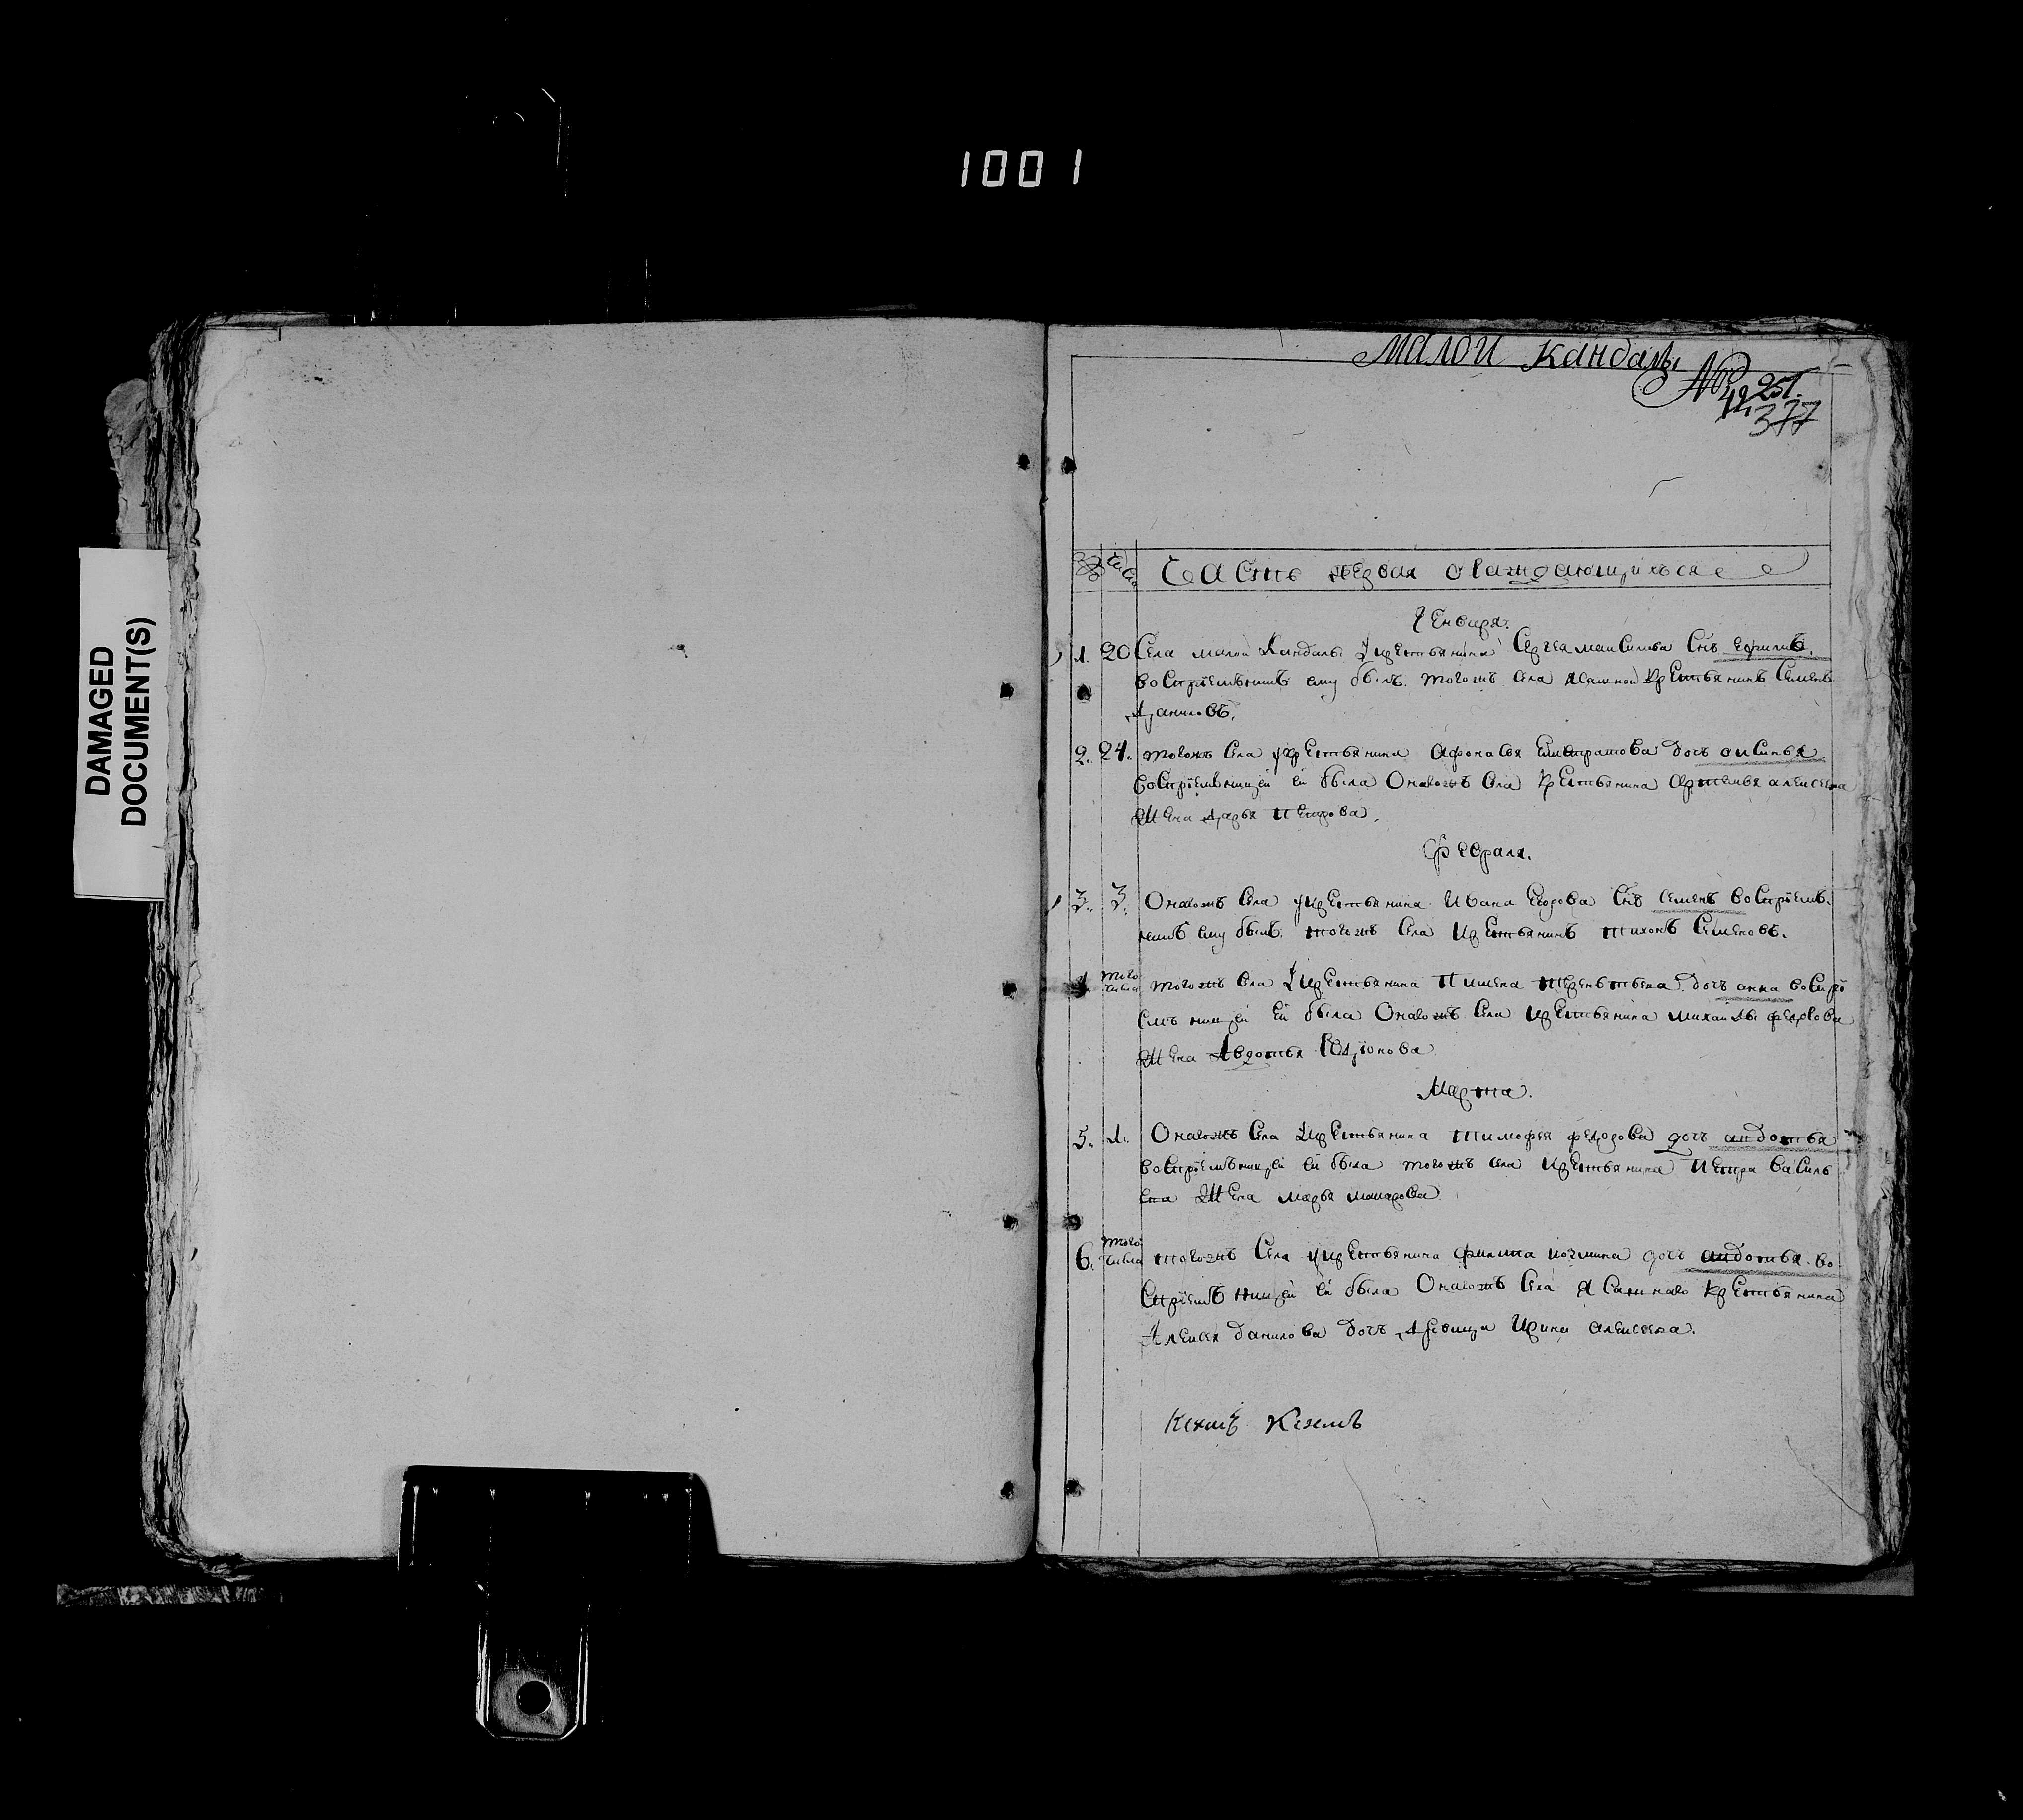 1001
DAMAGED
DOCUMENT(S)
Малои кандалы
№ 251.
377
Часть первая о раждающихъся
Генваря.
1. 20 Села малои Кандалы крестьянина Сергея максимова Снъ ефимъ.
воспрiемъникъ ему былъ. тогожъ села ясашной крестьянинъ Семенъ
Даниловъ.
2. 24. тогожъ села крестьянина афонасья Евстратова дочь аксинья
воспрiемъницей ей была Оногожъ села крестьянина артемья алексеева
Жена дарья петрова.
Февраля.
3. 3. Оногожъ села крестьянина Ивана Егорова Снъ семенъ воспрiемъ.
никъ ему былъ. тогожъ села крестьянинъ тихонъ Семеновъ.
4. того числа тогожъ села крестьянина Пимена терентьева дочь анна воспрi
емъницей ей была Оногожъ села крестьянина михаилы федорова
Жена Авдотья Родiонова
Марта.
5. 1. Оногожъ села крестьянина тимофея федорова дочь авдотья
воспрiемъницей ей была тогожъ села крестьянина петра василь
ева Жена марья макарова
6. того числа тогожъ села крестьянина филипа козмина дочь авдотья. во
спрiемъницей ей была Оногожъ села ясашнаго крестьянина
Алексея данилова дочь девица Ирина алексеева.